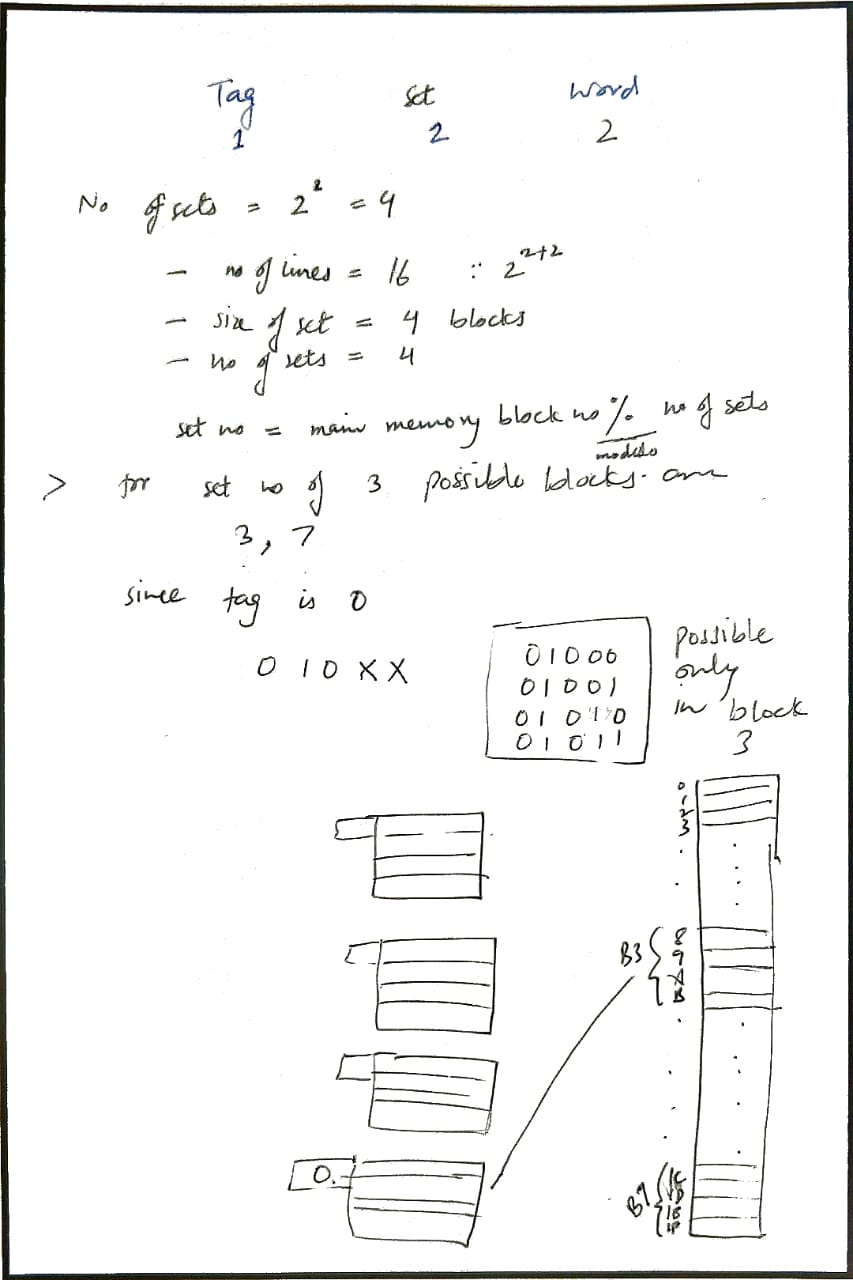 Tag set word
1 2 2
No of sets = 2² = 4
- no of lines = 16 ∵ 2²⁺²
- size of set = 4 blocks
- no of sets = 4
set no = main memory block no % no of sets
modulo
> for set no of 3 possible blocks are
3, 7
since tag is 0
0 10 XX
01000
01001
01010
01011
possible
only
in block
3
0
1
2
3
B3
8
9
A
B
0.
B7
1C
1D
1E
1F